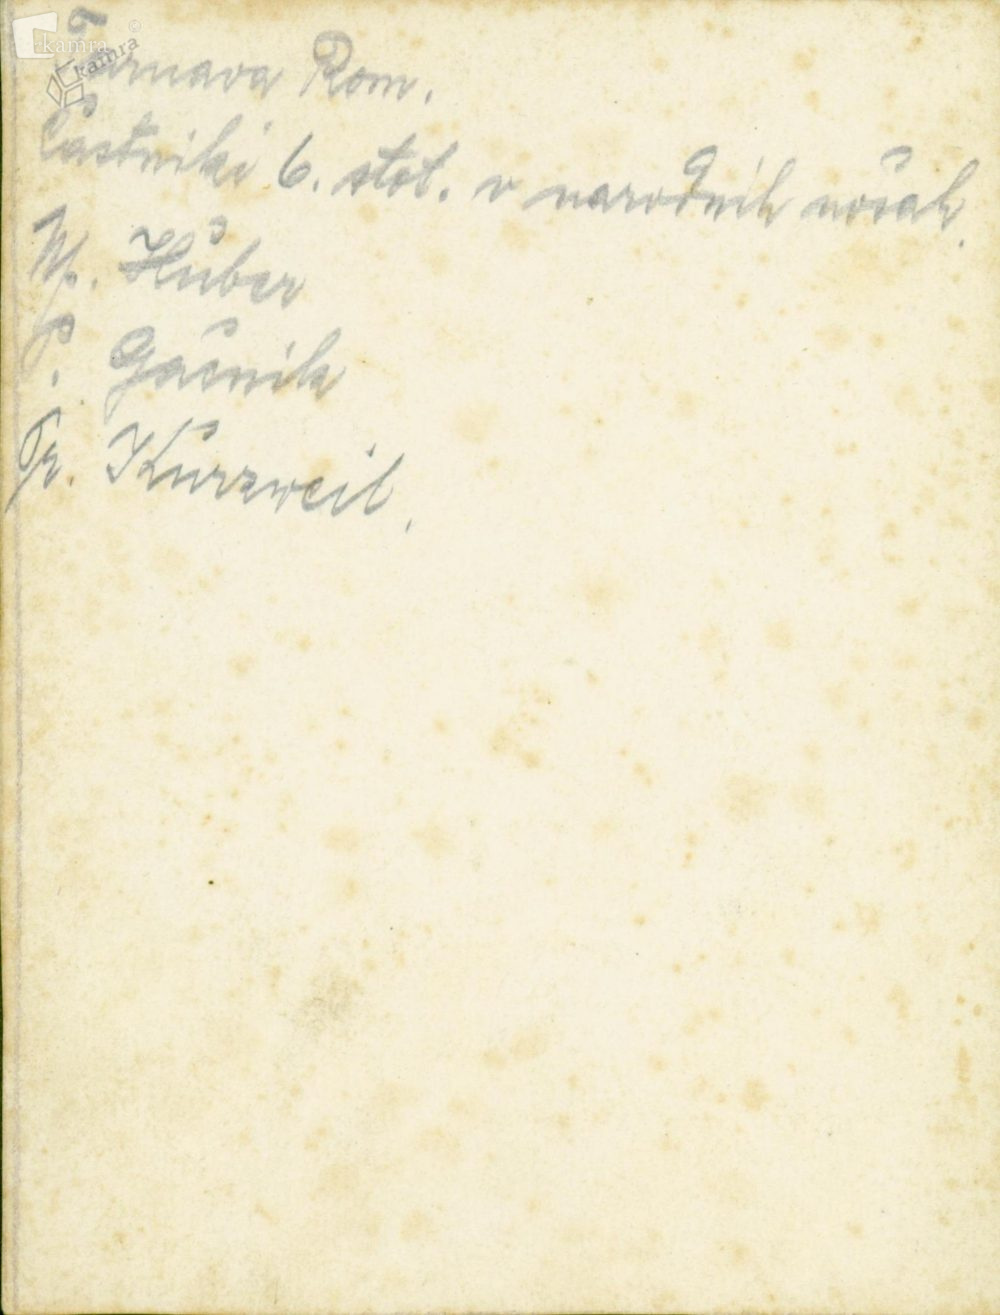 kamra
kamra
©
Tărnava Rom.
Častniki 6. stot. v narodnih nošah.
M. Huber
P. Gačnik
Fr. Kurzweil.